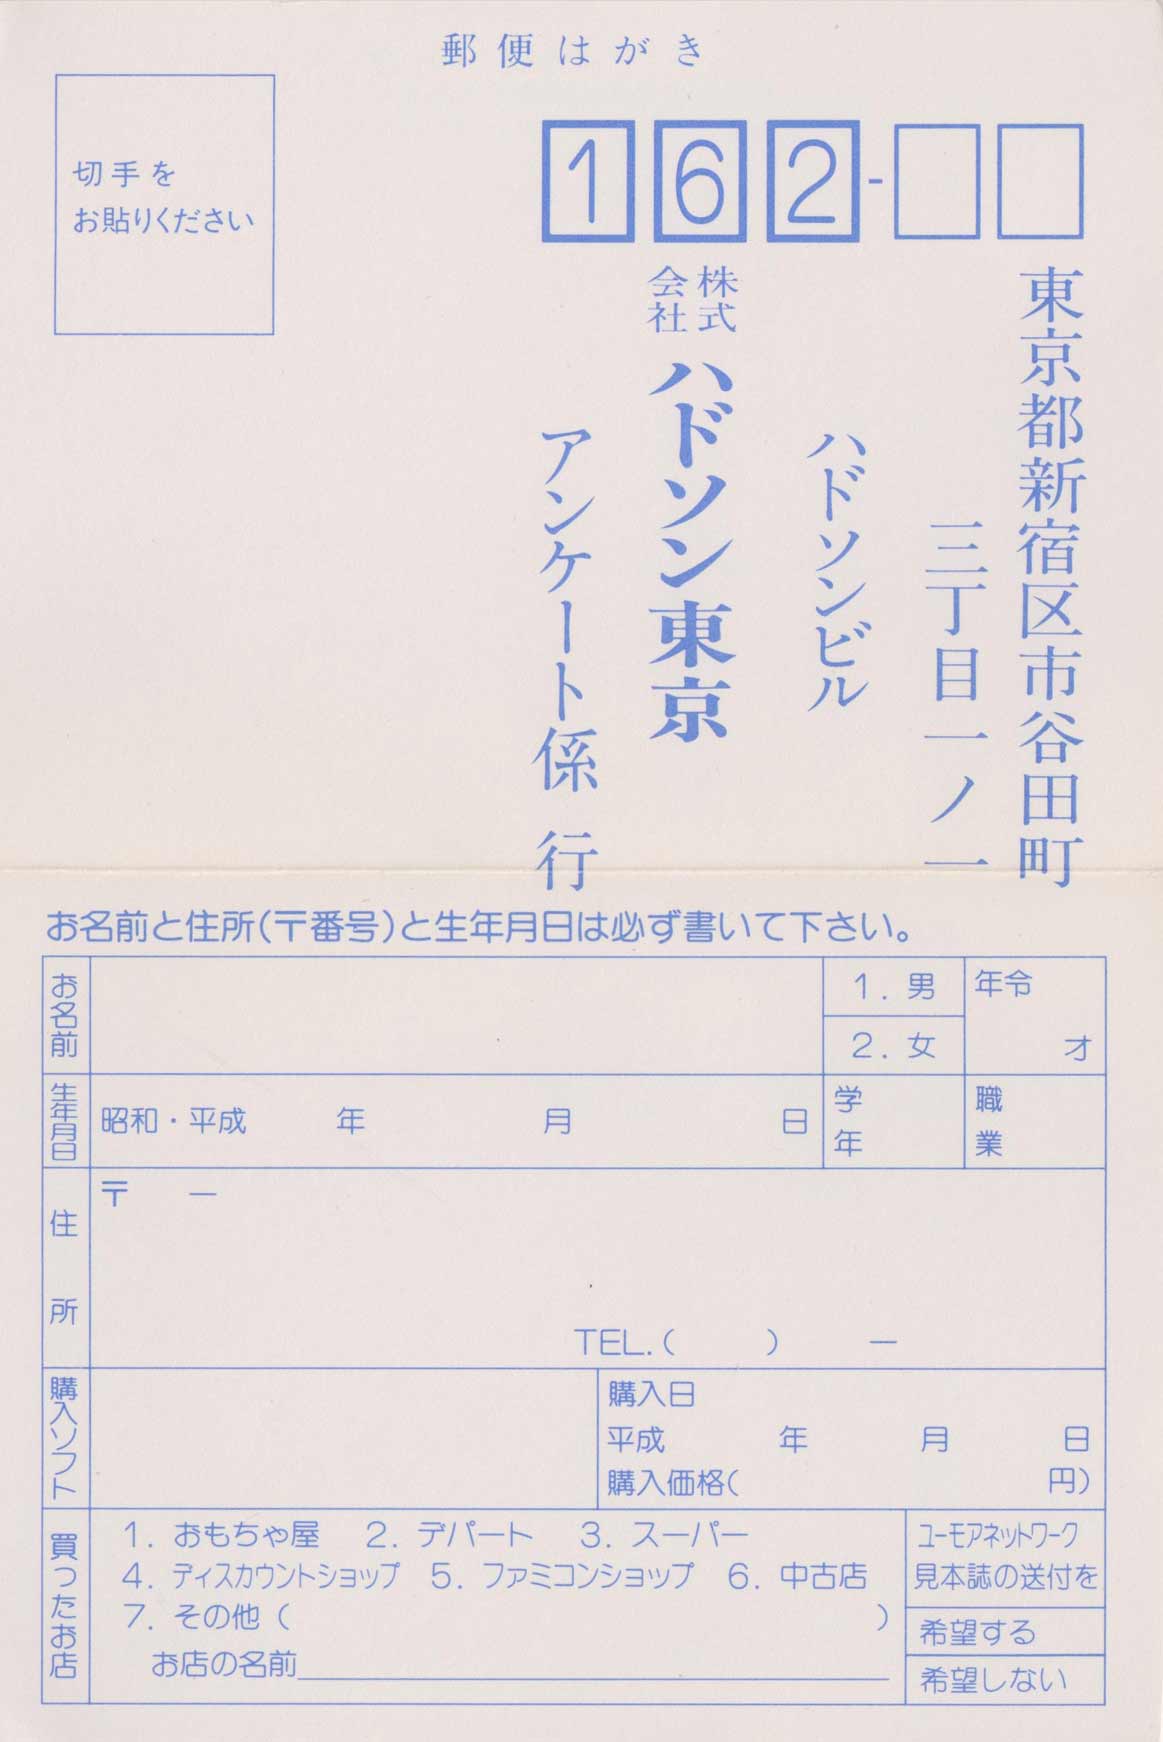 郵便はがき
切手を
お貼りください
162-
東京都新宿区市谷田町
三丁目一ノ一
ハドソンビル
株式会社 ハドソン東京
アンケート係 行
お名前と住所(〒番号)と生年月日は必ず書いて下さい。
お名前
1. 男
2. 女
年令
才
生年月日
昭和・平成 年 月 日
学年
職業
住所
〒 −
TEL.( ) −
購入ソフト
購入日
平成 年 月 日
購入価格( 円)
買ったお店
1. おもちゃ屋 2. デパート 3. スーパー
4. ディスカウントショップ 5. ファミコンショップ 6. 中古店
7. その他 ( )
お店の名前
ユーモアネットワーク
見本誌の送付を
希望する
希望しない